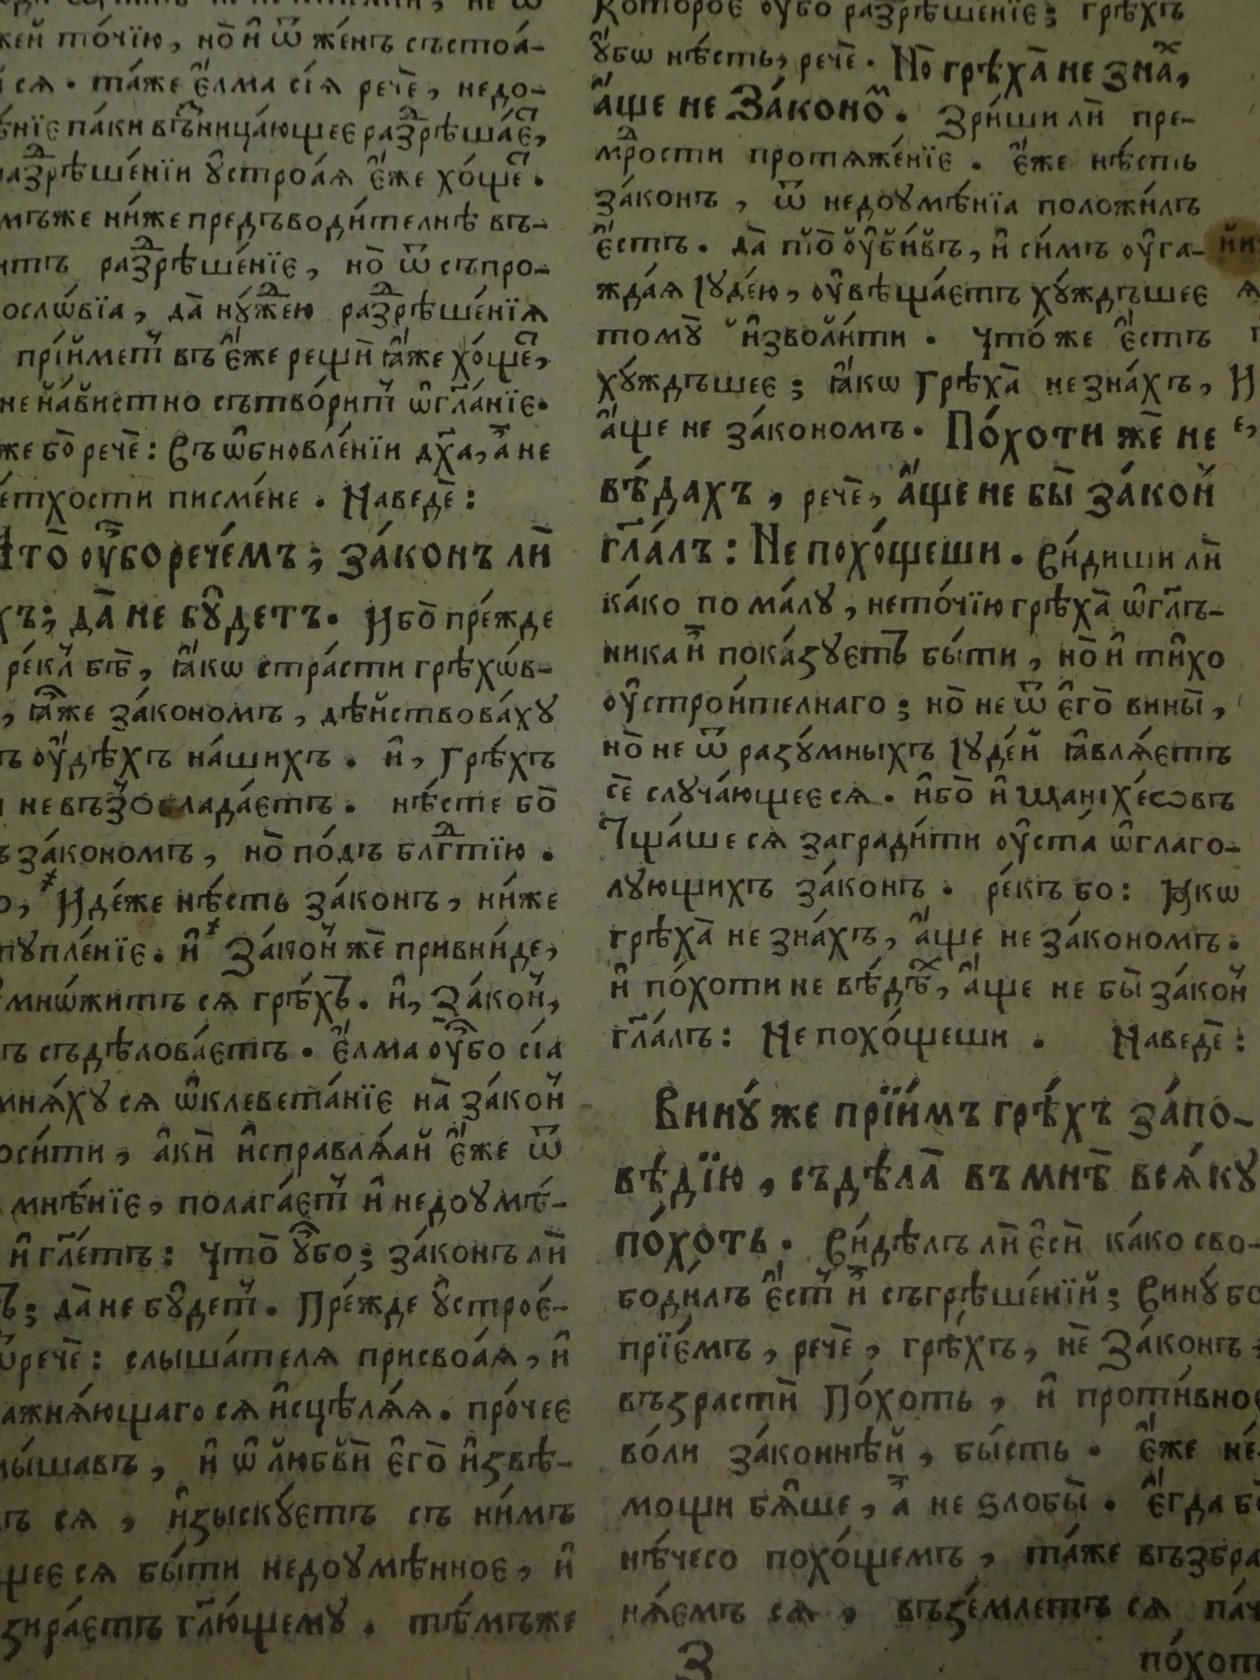 жей то́чїю, но̀ и҆ ѿ же́нъ състоѧ́-
сѧ . та́же є҆́лма сїѧ̀ речѐ, недо-
нїе па́ки вг҃ницаю́щее разⷣрѣша́етⷭ,
разⷣрѣше́нїи ᲂу҆строѧ́ѧ є҆́же хо́щеⷮ.
мъже ни́же предъводи́телнѣ въ-
итъ разⷣрѣше́нїе, но̀ ѿ съпро-
ослѡ́вїа, да̀ нꙋ́ждею разⷣрѣше́нїѧ
прїи́метъ въ є҆́же рещѝ ꙗ҆́же хо́щеⷮ,
ненави́стно сътвори́тъ ѡ҆гл҃а́нїе.
же бо̀ речѐ: Въ ѡ҆бновле́нїи дх҃а, а҆ не
ве́тхости писме́не . Наведѐ:
Что̀ ᲂу҆̀бо рече́мъ; зако́нъ лѝ
хъ; да̀ не бꙋ́детъ. И҆бо̀ пре́жде
ре́клъ бѣ̀, ꙗ҆́кѡ стра́сти грѣхѡ́в-
, ꙗ҆̀же зако́номъ, дѣ́йствовахꙋ
ъ ᲂу҆́дѣхъ на́шихъ . и҆, Грѣ́хъ
не въз̾ѡблада́етъ . нѣ́сте бо̀
ъ зако́номъ, но̀ по́дъ блгⷣтїю .
о, И҆дѣ́же нѣ́сть зако́нъ, ни́же
тꙋпле́нїе. и҆̀ Зако́нъ жѐ привни́де,
мнѡ́житъ сѧ грѣ́хъ. и҆, Зако́нъ,
ъ съдѣлова́етъ . Є҆́лма ᲂу҆̀бо сїа̀
мнѧ́хꙋ сѧ ѡ҆клевета́нїе на̀ зако́нъ
оси́ти, а҆́ки̇̀ и҆справлѧ́ѧй є҆́же ѿ
мнѣ́нїе, полага́етъ и҆ недоꙋмѣ́-
и҆ гл҃етъ: Что̀ ᲂу҆́бо; зако́нъ лѝ
ъ; да̀ не бꙋ́детъ. Пре́жде ᲂу҆строє́-
речѐ: слы́шателѧ присвоѧ́ѧ, и҆
ажнѧ́ющаго сѧ и҆сцѣлѧ́ѧ. про́чее
лы́шавъ, и҆ ѿ любвѝ є҆го̀ и҆звѣ-
ъ сѧ, и҆зыскꙋ́етъ съ ни́мъ
щее сѧ бы́ти недоꙋмѣ́нное, и҆
зира́етъ гл҃ющемꙋ . тѣ́мъже
Кото́рое ᲂу҆́бо разрѣше́нїе; грѣ́хъ
ᲂу҆́бѡ нѣ́сть, речѐ . Но̀ грѣха̀ не зна́хⷯ,
а҆́ще не Зако́ноⷨ. Зри́ши лѝ пре-
мⷣрости протѧже́нїе . є҆́же нѣ́сть
зако́нъ, ѿ недоꙋмѣ́нїа положи́лъ
є҆́стъ. да̀ по̀ ᲂу҆бы́въ, и҆ си́мъ ᲂу҆га-
жда́ѧ І҆ꙋде́ю, ᲂу҆вѣща́етъ хꙋ́ждъшее
томꙋ̀ и҆зволи́ти . что́ же є҆́стъ
хꙋ́ждъшее; ꙗ҆́кѡ Грѣха̀ не зна́хъ,
а҆́ще не зако́номъ. По́хоти жѐ не
вѣ́дахъ, речѐ, а҆́ще не бы̀ зако́нъ
гл҃а́лъ: Не похо́щеши. Ви́диши лѝ
ка́ко по ма́лꙋ, нето́чїю грѣха̀ ѡ҆гл҃ъ-
ника и҆̀ пока́зꙋетъ бы́ти, но̀ и҆ ти́хо
ᲂу҆строи́телнаго; но̀ не ѿ є҆гѡ̀ вины̀,
но̀ не ѿ разꙋ́мныхъ І҆ꙋде́й ꙗ҆влѧ́етъ
сѐ слꙋча́ющеесѧ . и҆бо̀ и҆ Манїхе́ѡвъ
Тща́ше сѧ загради́ти ᲂу҆ста̀ ѡ҆глаго-
лꙋющихъ зако́нъ . ре́къ бо: Ꙗ҆кѡ
грѣха̀ не зна́хъ, а҆́ще не зако́номъ.
и҆ по́хоти не вѣ́дѣⷯ, а҆́ще не бы̀ зако́нъ
гл҃а́лъ: Не похо́щеши . Наведѐ:
Винꙋ́ же прїи́мъ грѣ́хъ за́по-
вѣдїю, съдѣ́ла въ мнѣ̀ всѧ́кꙋ
по́хоть. Ви́дѣлъ лѝ є҆сѝ ка́ко сво-
боди́лъ є҆́стъ и҆̀ съгрѣше́нїй; Винꙋ́ бо
прїе́мъ, речѐ, грѣ́хъ, нѐ Зако́нъ,
възрастѝ По́хоть, и҆ проти́вное
во́ли зако́ннѣй, бы́сть . є҆́же не́-
мощи бѧ́ше, а҆̀ не ѕло́бы̀ . є҆гда̀ бо
нѣ́чесо похо́щемъ, та́же възбра
нѧ́емъ сѧ, въземлетъ сѧ па́ч
З
по́хоть